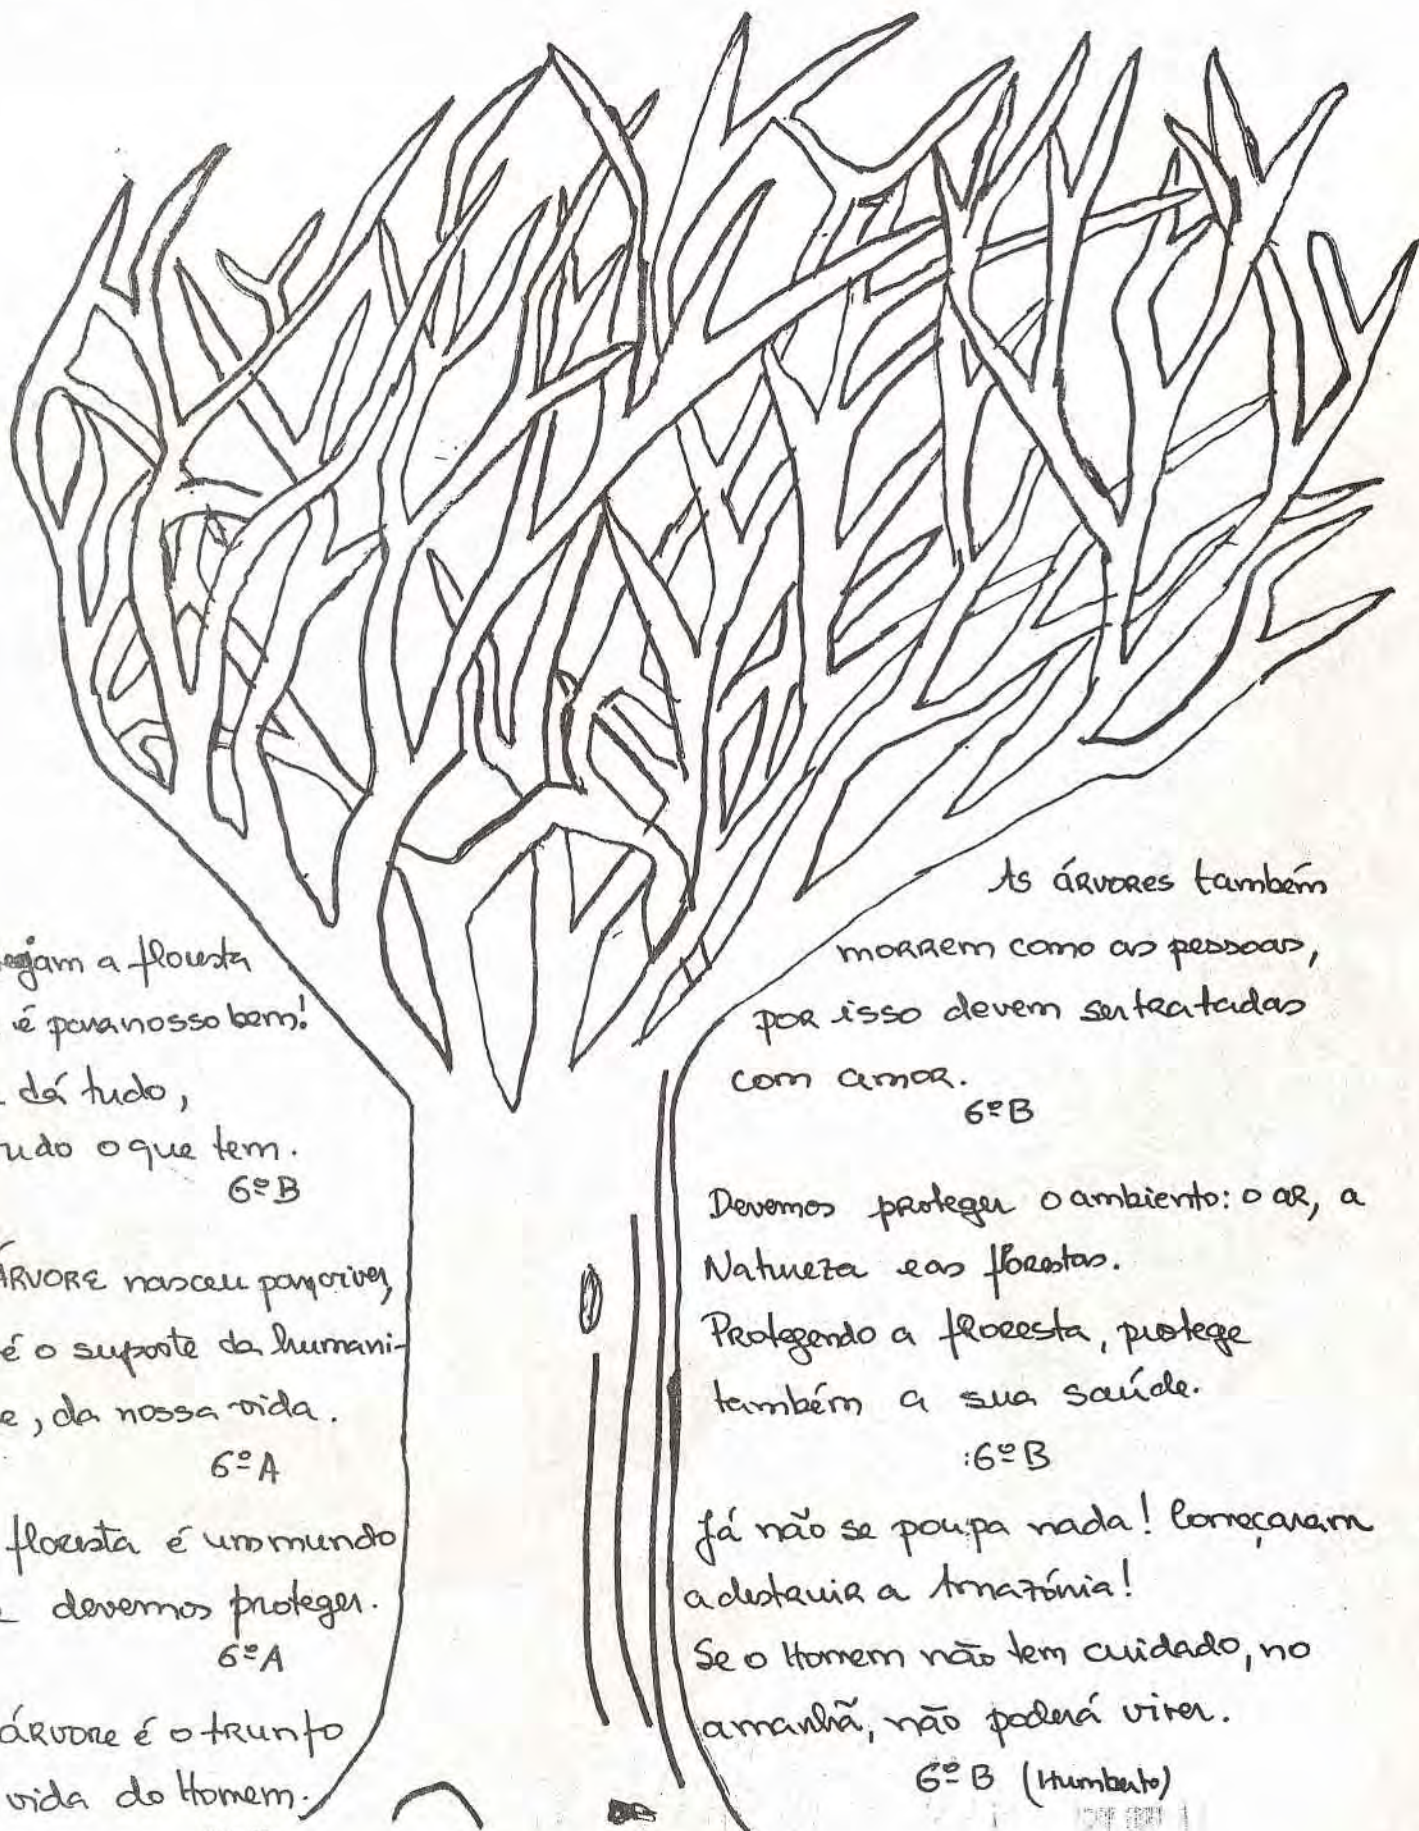 egam a floresta
é para nosso bem!
dá tudo,
udo o que tem.
6º B
ÁRVORE nasceu para viver,
é o suporte da humani-
e, da nossa vida.
6º A
floresta é um mundo
devemos proteger.
6º A
árvore é o trunfo
vida do Homem.
As árvores também
morrem como as pessoas,
por isso devem ser tratadas
com amor.
6º B
Devemos proteger o ambiente: o ar, a
Natureza e as florestas.
Protegendo a floresta, protege
também a sua saúde.
:6º B
Já não se poupa nada! Começaram
a destruir a Amazónia!
Se o Homem não tem cuidado, no
amanhã, não poderá viver.
6º B (Humberto)